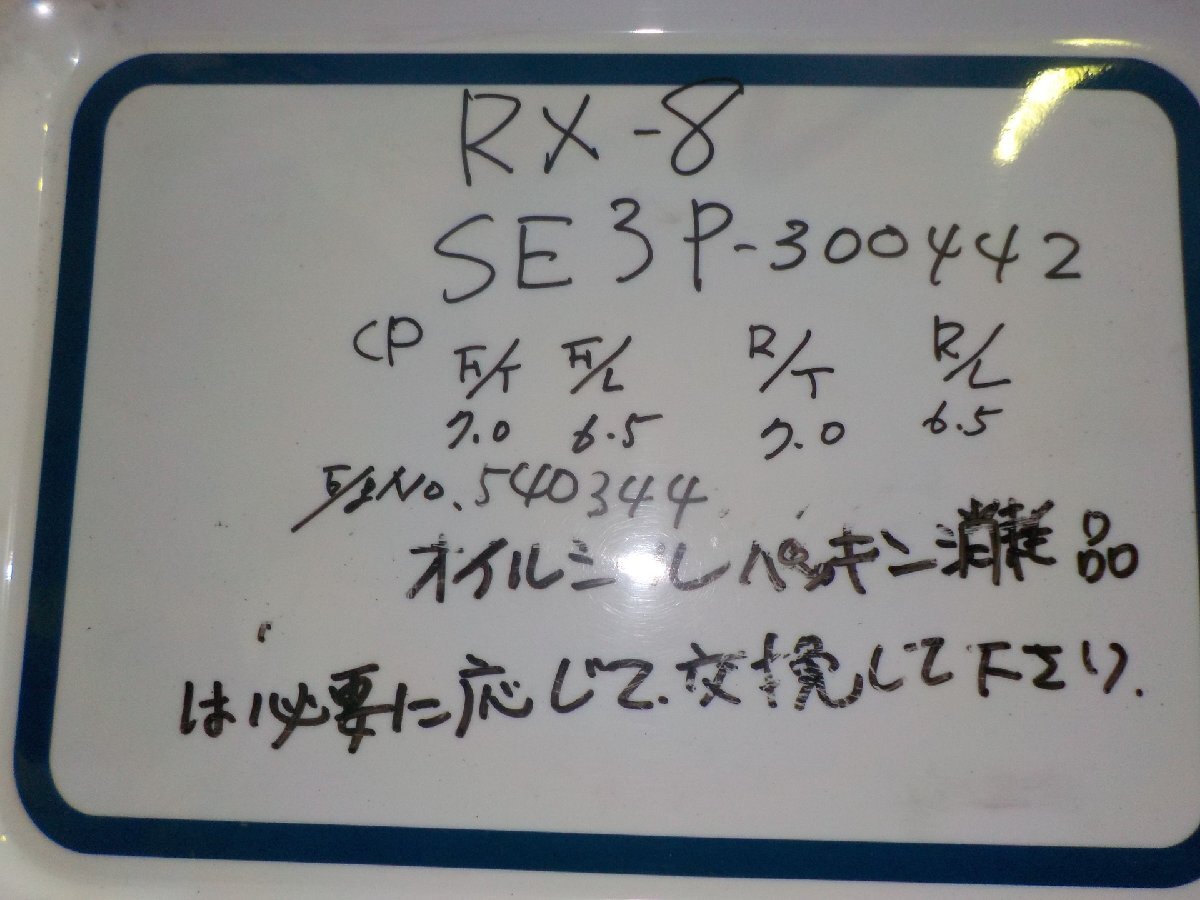 RX-8
SE3P-300442
CP F/T F/L R/T R/L
7.0 6.5 7.0 6.5
E/gNo.540344
オイルシールパッキン消耗品
は必要に応じて.交換して下さい.